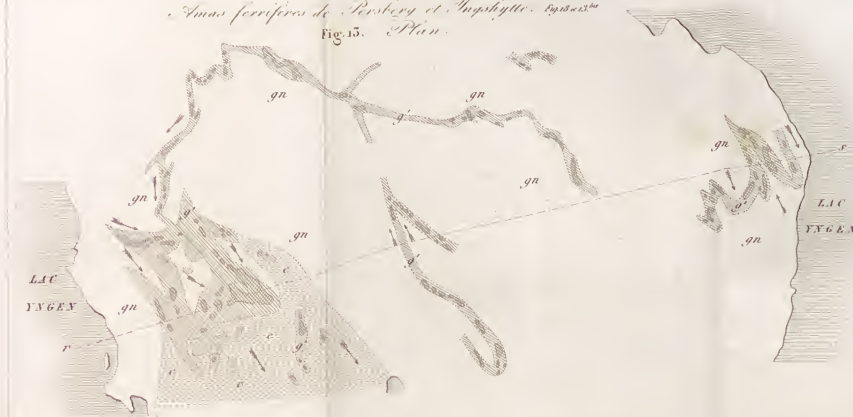 Amas ferrifères de Persberg et Yngshytte. Fig. 13 et 13bis
Fig. 13. Plan.
gn
gn
g'
gn
gn
s
gn
g'
LAC
YNGEN
gn
g'
gn
c
g'
LAC
YNGEN
gn
r
c
g'
c
c